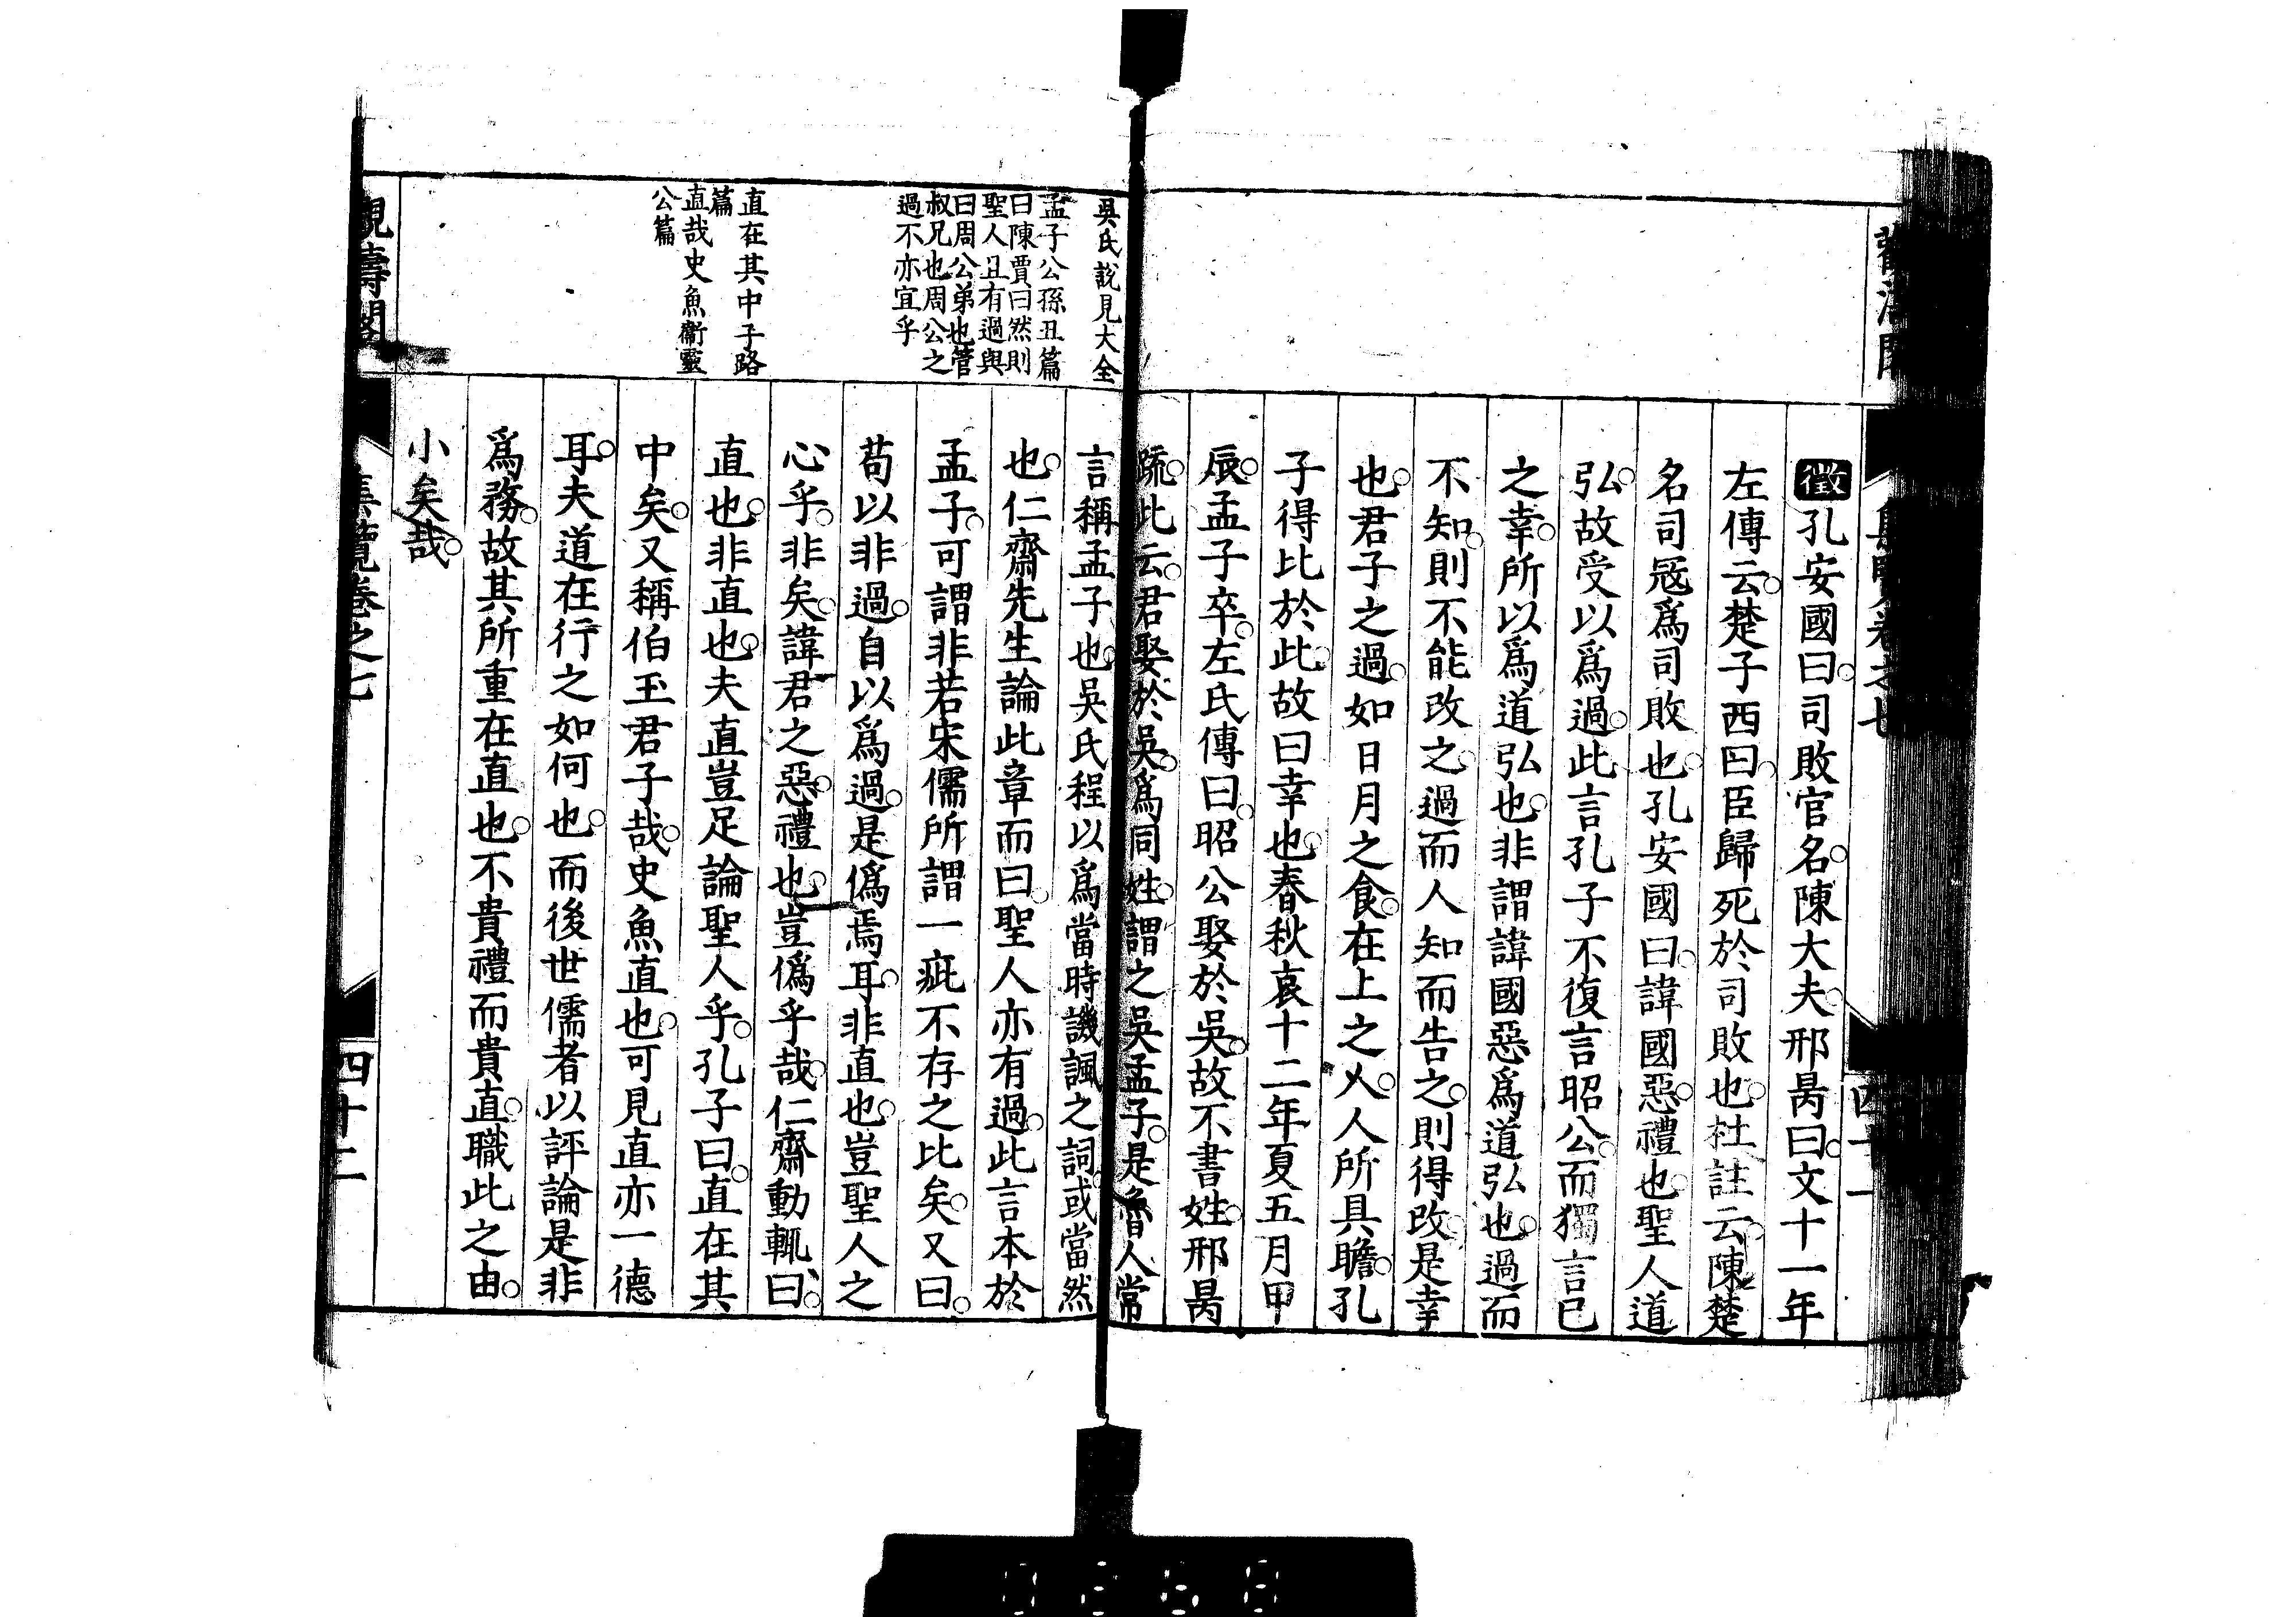 徵孔安國曰司敗官名陳大夫邢昺曰文十一年
左傳云楚子西曰臣歸死於司敗也杜註云陳楚
名司冦爲司敗也孔安國曰諱國惡禮也聖人道
弘故受以爲過此言孔子不復言昭公而獨言已
之幸所以爲道弘也非謂諱國惡爲道弘也過而
不知則不能改之過而人知而告之則得改是幸
也君子之過如日月之食在上之人人所具瞻孔
子得比於此故曰幸也春秋哀十二年夏五月甲
辰孟子卒左氏傳曰昭公娶於吳故不書姓邢昺
疏此云君娶於吳爲同姓謂之吳孟子是魯人常
吳氏說見大全
孟子公孫丑篇
曰陳賈曰然則
聖人且有過與
曰周公弟也管
叔兄也周公之
過不亦宜乎
直在其中子路
篇
直哉史魚衞靈
公篇
言稱孟子也吳氏程以爲當時譏諷之詞或當然
也仁齋先生論此章而曰聖人亦有過此言本於
孟子可謂非若宋儒所謂一疵不存之比矣又曰
苟以非過自以爲過是僞焉耳非直也豈聖人之
心乎非矣諱君之惡禮也豈僞乎哉仁齋動輒曰
直也非直也夫直豈足論聖人乎孔子曰直在其
中矣又稱伯玉君子哉史魚直也可見直亦一德
耳夫道在行之如何也而後世儒者以評論是非
爲務故其所重在直也不貴禮而貴直職此之由
小矣哉
觀濤閣
集覽卷之七
四十二